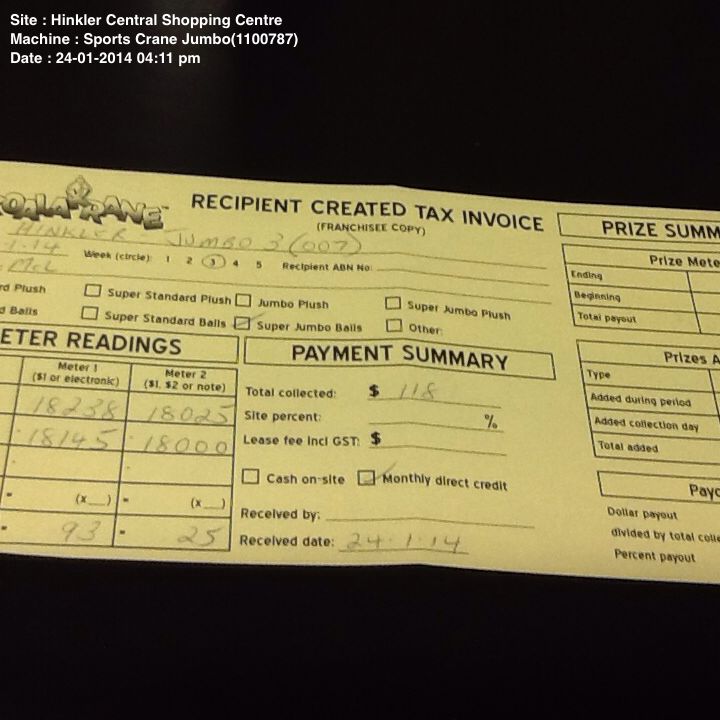 Site : Hinkler Central Shopping Centre
Machine : Sports Crane Jumbo(1100787)
Date : 24-01-2014 04:11 pm
OALA RANE™
RECIPIENT CREATED TAX INVOICE
(FRANCHISEE COPY)
PRIZE SUMM
HINKLER - JUMBO 3 (007)
1.14 Week (circle): 1 2 3 4 5 Recipient ABN No:
Prize Mete
Ending
Beginning
Total payout
rd Plush Super Standard Plush Jumbo Plush Super Jumbo Plush
d Balls Super Standard Balls Super Jumbo Balls Other:
ETER READINGS
Meter 1 Meter 2
($1 or electronic) ($1, $2 or note)
18238 18025
18145 18000
- (x__) - (x__)
= 93 = 25
PAYMENT SUMMARY
Total collected: $ 118
Site percent: %
Lease fee incl GST: $
Cash on-site Monthly direct credit
Received by:
Received date: 24.1.14
Prizes A
Type
Added during period
Added collection day
Total added
Payo
Dollar payout
divided by total colle
Percent payout